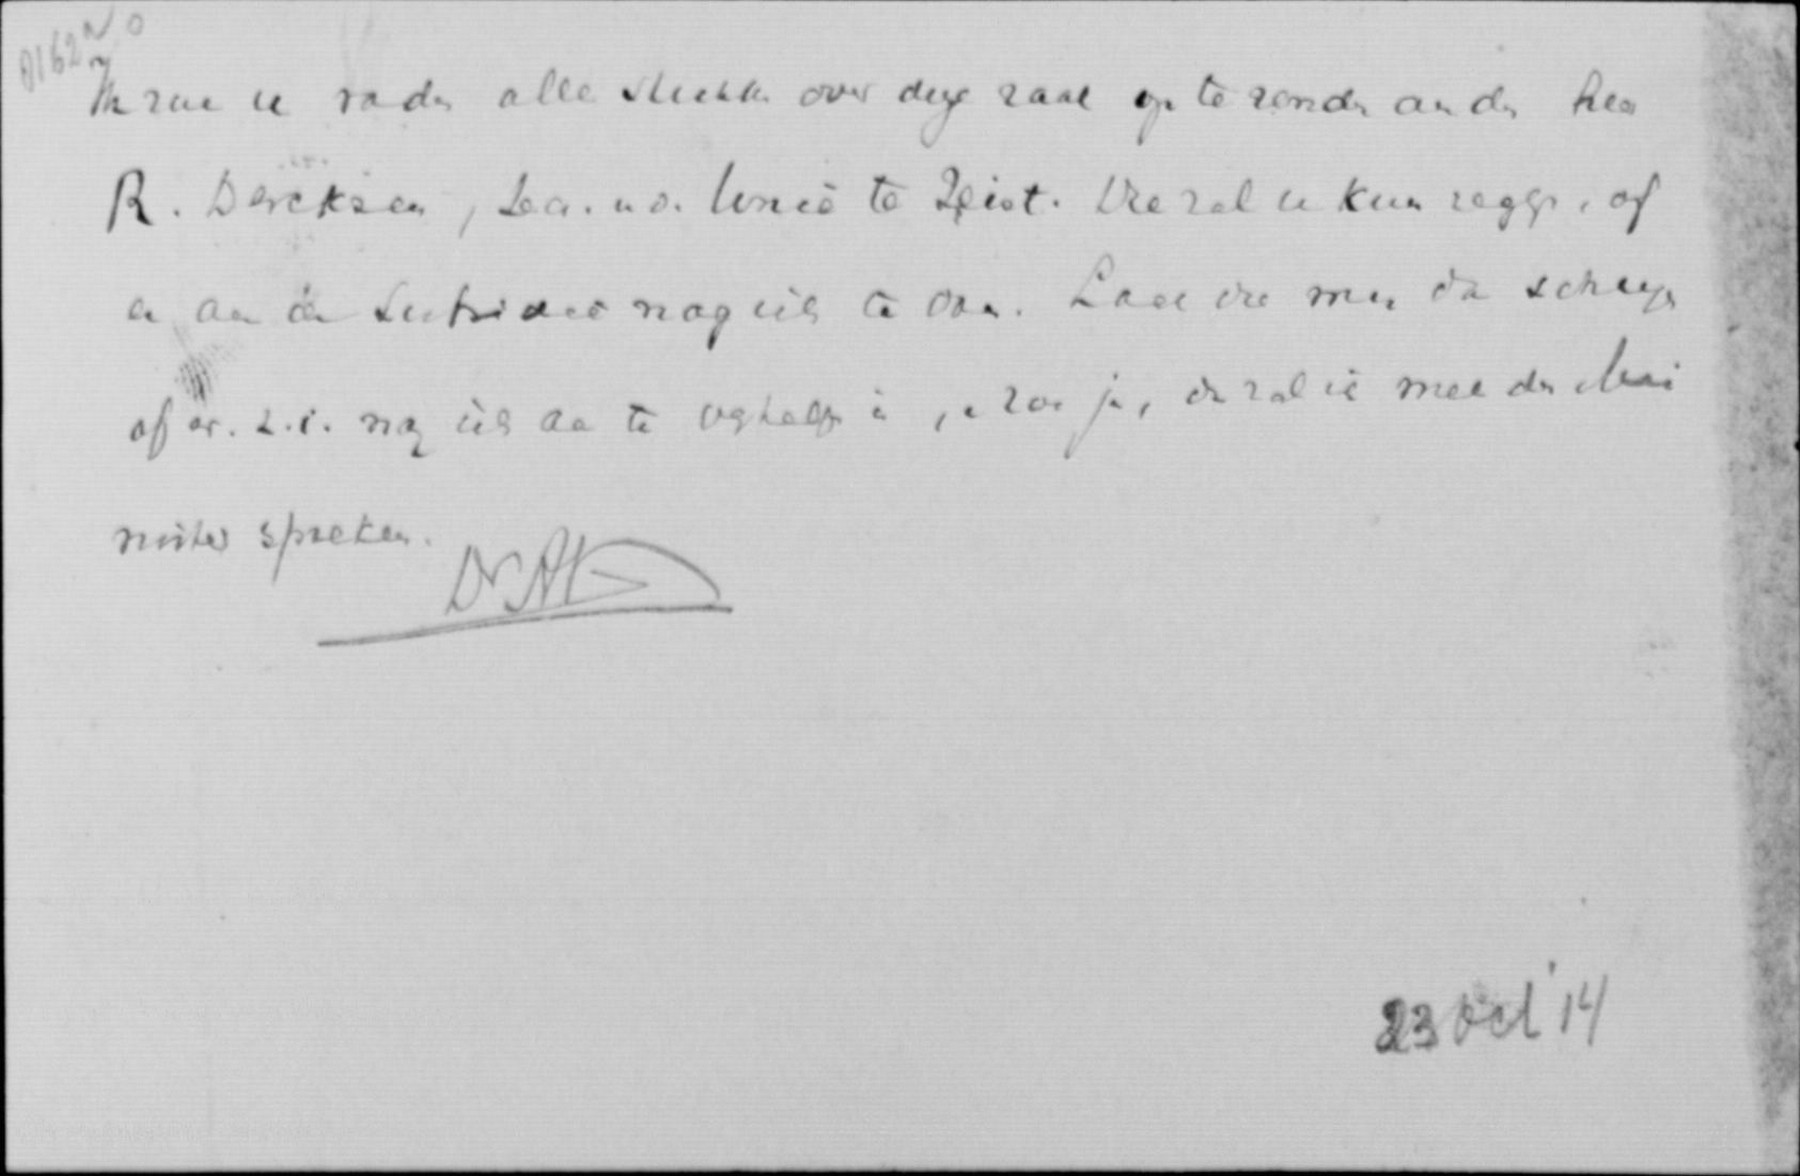 Ik zou u raden alle stukken over deze zaak op te zenden aan den heer
R. Dercksen, Secr. v.d. Unie te Zeist. Die zal u kunnen zeggen, of
er aan de subsidie nog iets te doen. Laat die mij dan schrijven
of er. z.i. nog iets aan te verhelpen is, en zoo ja, dan zal ik met den Mi
nister spreken.
Dr AK
23 Oct '14